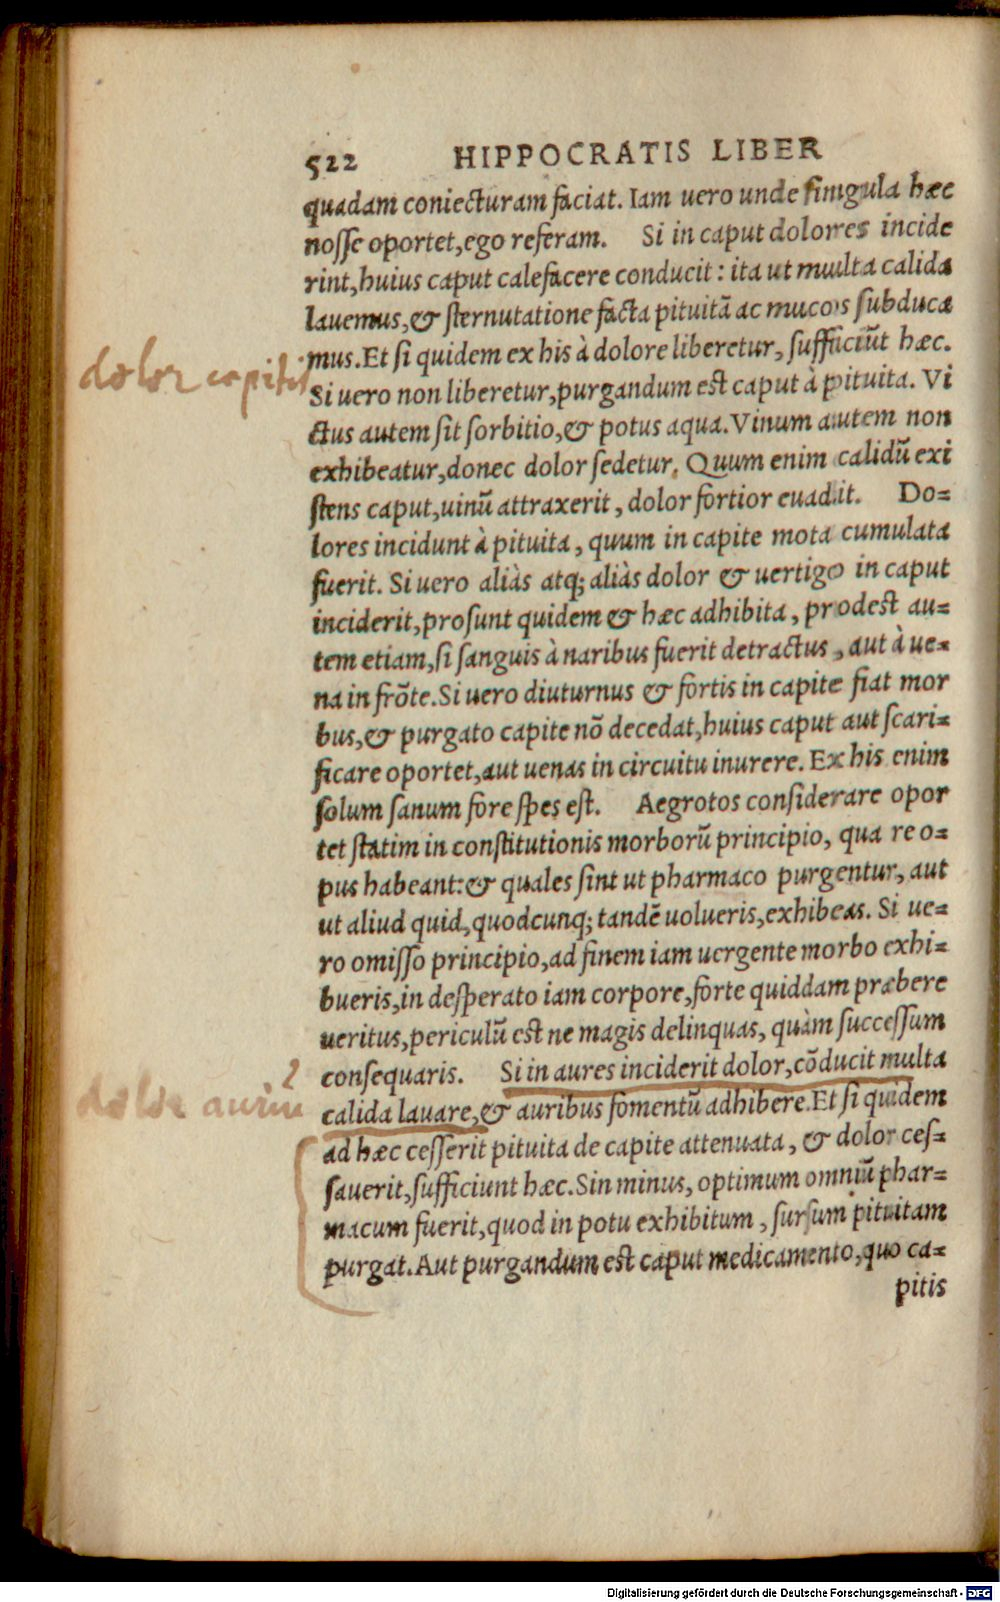 522 HIPPOCRATIS LIBER
quadam coniecturam faciat. Iam uero unde singula hæc
nosse oportet, ego referam. Si in caput dolores incide
rint, huius caput calefacere conducit: ita ut multa calida
lauemus, & sternutatione facta pituitã ac mucos subduca
mus. Et si quidem ex his à dolore liberetur, sufficiũt hæc.
dolor capitis
Si uero non liberetur, purgandum est caput à pituita. Vi
ctus autem sit sorbitio, & potus aqua. Vinum autem non
exhibeatur, donec dolor sedetur. Quum enim calidũ exi
stens caput, uinũ attraxerit, dolor fortior euadit. Do=
lores incidunt à pituita, quum in capite mota cumulata
fuerit. Si uero aliàs atq; aliàs dolor & uertigo in caput
inciderit, prosunt quidem & hæc adhibita, prodest au=
tem etiam, si sanguis à naribus fuerit detractus, aut à ue=
na in frõte. Si uero diuturnus & fortis in capite fiat mor
bus, & purgato capite nõ decedat, huius caput aut scari=
ficare oportet, aut uenas in circuitu inurere. Ex his enim
solum sanum fore spes est. Aegrotos considerare opor
tet statim in constitutionis morborũ principio, qua re o=
pus habeant: & quales sint ut pharmaco purgentur, aut
ut aliud quid, quodcunq; tandẽ uolueris, exhibeas. Si ue=
ro omisso principio, ad finem iam uergente morbo exhi=
bueris, in desperato iam corpore, forte quiddam præbere
ueritus, periculũ est ne magis delinquas, quàm successum
consequaris. Si in aures inciderit dolor, cõducit multa
dolor auriu
calida lauare, & auribus fomentũ adhibere. Et si quidem
ad hæc cesserit pituita de capite attenuata, & dolor ces=
sauerit, sufficiunt hæc. Sin minus, optimum omniũ phar=
macum fuerit, quod in potu exhibitum, sursum pituitam
purgat. Aut purgandum est caput medicamento, quo ca=
pitis
Digitalisierung gefördert durch die Deutsche Forschungsgemeinschaft - DFG